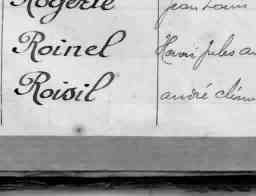 Rogerie Jean Louis
Roinel Henri Jules
Roisil andré clém